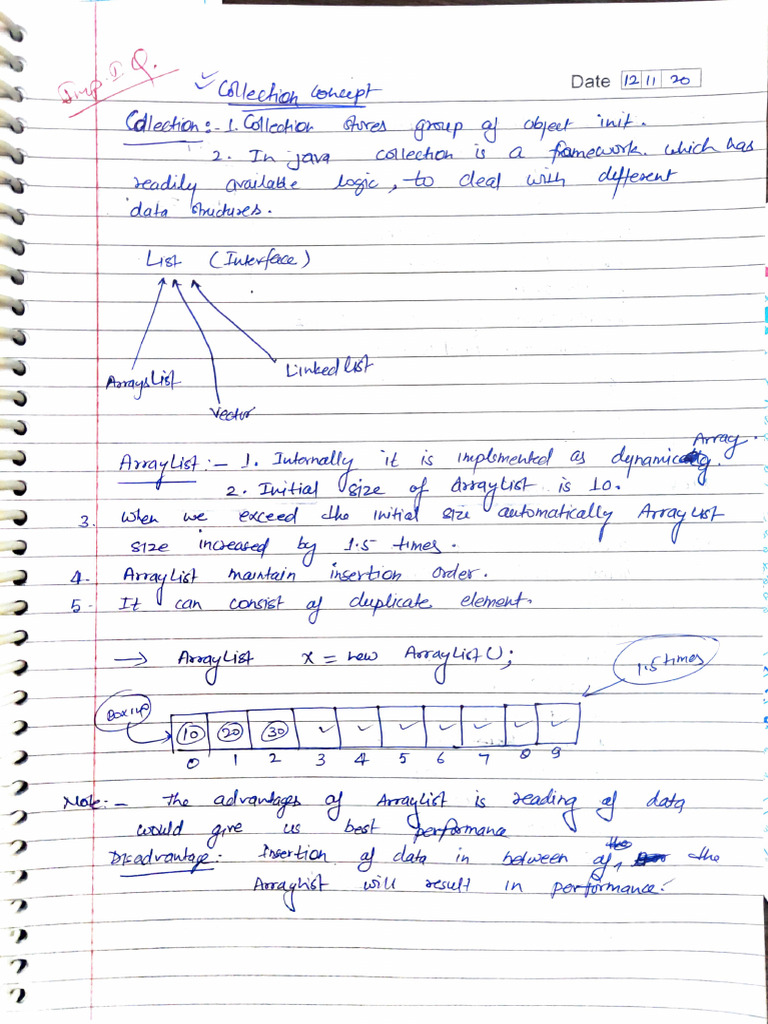 Imp. I. Q.
Date 12 11 20
Collection Concept
Collection:- 1. Collection stores group of object init.
2. In java collection is a framework. which has
readily available logic, to deal with different
data structures.
List (Interface)
ArraysList
Linked list
Vector
ArrayList :- 1. Internally it is implmented as dynamic Array.
2. Initial size of ArrayList is 10.
3. When we exceed the initial size automatically ArrayList
size increased by 1.5 times.
4. ArrayList maintain insertion order.
5- It can consist of duplicate element.
→ ArrayList x = new ArrayList();
1.5 times
10 20 30
0 1 2 3 4 5 6 7 8 9
Note:- The advantages of ArrayList is reading of data
would give us best performance
Disadvantage: Insertion of data in between of the the
ArrayList will result in performance.